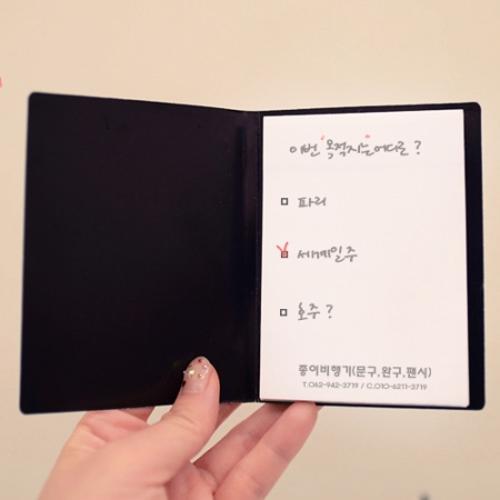 이번 목적지는 어디로 ?
파리
세계일주
호주 ?
종이비행기(문구,완구,팬시)
T.062-942-3719 / C.010-6211-3719